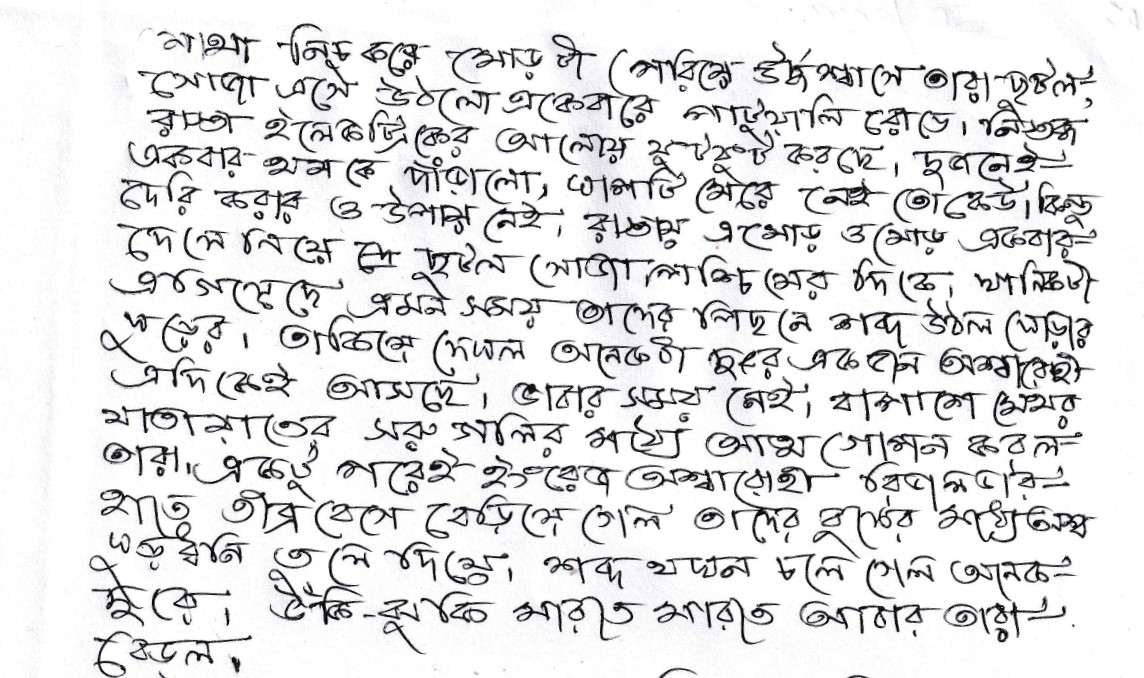 মাথা নিচু করে মোড় টা পেরিয়ে উর্দ্ধশ্বাসে তারা ছুটল,
সোজা এসে উঠলো একেবারে পাটুয়ালি রোডে। নিস্তব্ধ
রাস্তা ইলেকট্রিকের আলোয় ফুটফুট করছে, দুজনেই
একবার থমকে দাঁড়ালো, ঘাপটি মেরে নেই তো কেউ। কিন্তু
দেরি করার ও উপায় নেই, রাস্তায় এমোড় ওমোড় একবার
দেখে নিয়ে ছুটল সোজা পশ্চিমের দিকে, খানিকটা
এগিয়েছে এমন সময় তাদের পিছনে শব্দ উঠল ঘোড়ার
খুড়ের। তাকিয়ে দেখল অনেকটা দূরে একজন অশ্বারোহী
এদিকেই আসছে, ভাবার সময় নেই, বাপাশে মেথর
যাতায়াতের সরু গলির মধ্যে আত্মগোপন করল
তারা। একটু পরেই ইংরেজ অশ্বারোহী রিভালভার
হাতে তীব্র বেগে বেড়িয়ে গেল তাদের বুকের মধ্যে অশ্ব
খুড়ধ্বনি তুলে দিয়ে, শব্দ যখন চলে গেল অনেক
দুরে, উঁকি-ঝুকি মারতে মারতে আবার তারা
বেড়ুল,